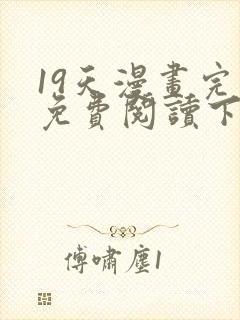 19天漫畫完
免費閱讀下
傅嘯塵1